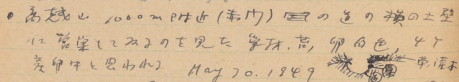 • 高越山 1000m附近(表門)の道の横の土壁
に営巣してゐるのを見た 草材、苔、卵白色、4ケ
産卵中と思われる May 20. 1949